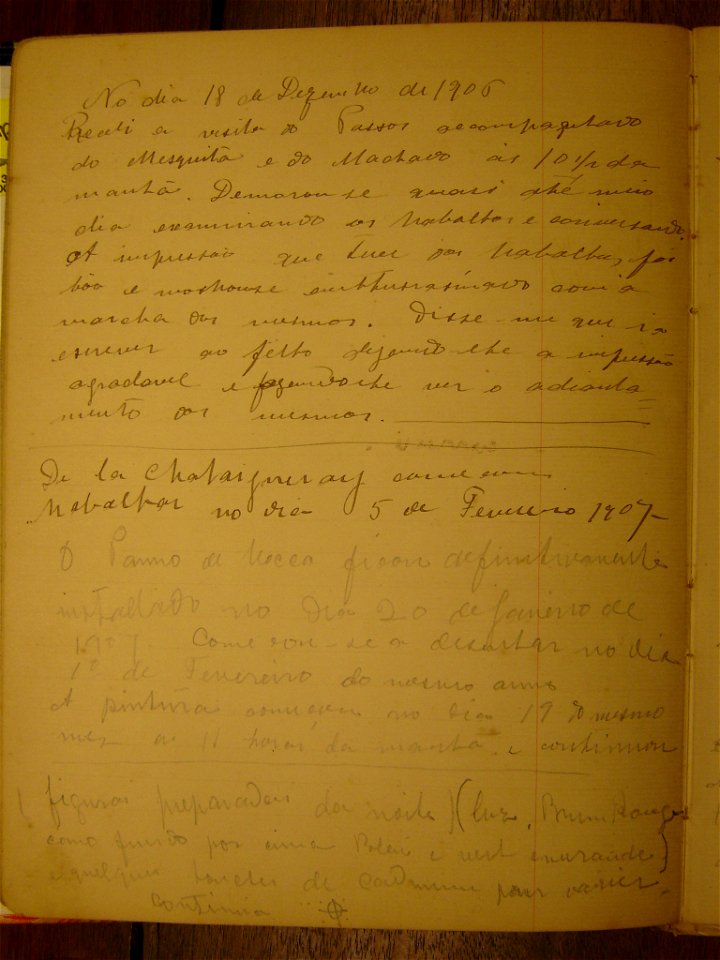 No dia 18 de Dezembro de 1906
Recebi a visita do Passos acompanhado
do Mesquita e do Machado às 10 1/2 da
manhã. Demorou-se quasi até meio
dia examinando os trabalhos e conversando.
A impressão que teve dos trabalhos, foi
bôa e mostrou-se enthusiasmado com a
marcha dos mesmos. Disse-me que ia
escrever ao dizendo-lhe a impressão
agradavel e fazendo-lhe ver o adianta=
mento dos mesmos.
De la Chataigneray começou
trabalhar no dia 5 de Fevereiro 1907-
O Panno de bocca ficou definitivamente
installado no dia 20 de Janeiro de
1907. Começou-se a desenhar no dia
1º de Fevereiro do mesmo anno
A pintura começou no dia 19 do mesmo
mez as 11 horas da manhã. e continuou
figuras preparadas da noite (luz, Brun Rouge
como fundo por cima e vert émeraude)
e quelques touches de Cadmium pour varier.
Continua